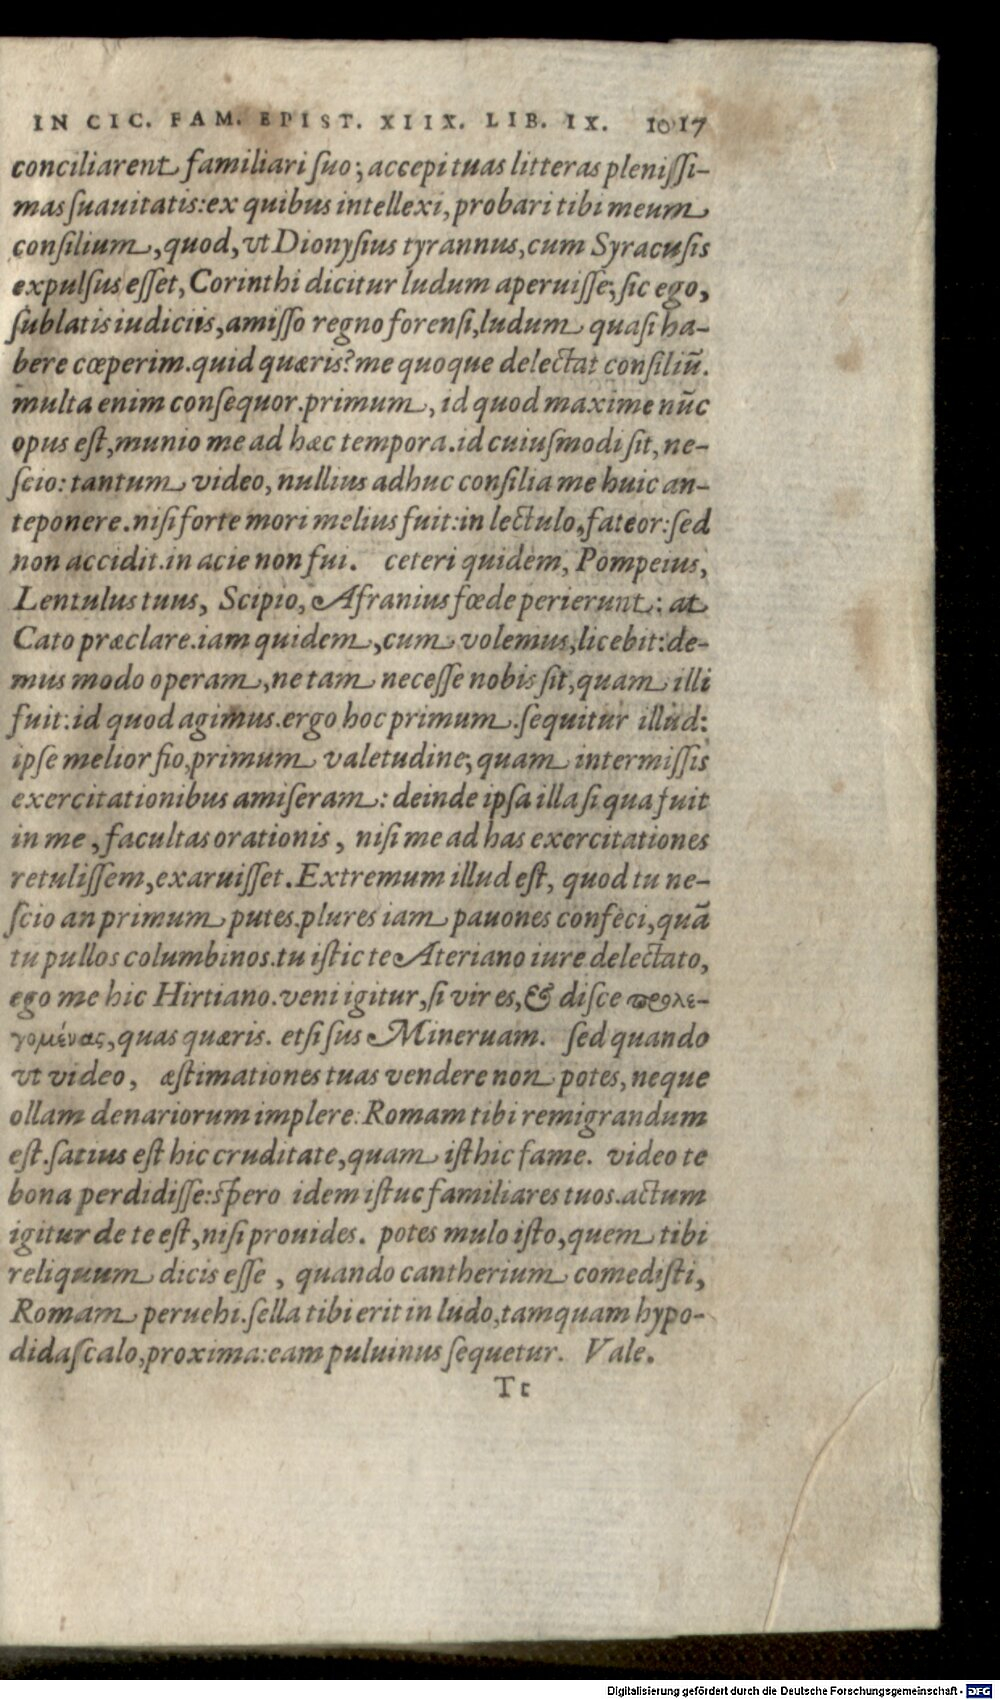 IN CIC. FAM. EPIST. XIIX. LIB. IX. 1017
conciliarent familiari ſuo; accepi tuas litteras pleniſſi-
mas ſuauitatis: ex quibus intellexi, probari tibi meum
conſilium, quod, vt Dionyſius tyrannus, cum Syracuſis
expulſus eſſet, Corinthi dicitur ludum aperuiſſe; ſic ego,
ſublatis iudiciis, amiſſo regno forenſi, ludum quaſi ha-
bere cœperim. quid quæris? me quoque delectat conſiliũ.
multa enim conſequor. primum, id quod maxime nũc
opus eſt, munio me ad hæc tempora. id cuiuſmodi ſit, ne-
ſcio: tantum video, nullius adhuc conſilia me huic an-
teponere. niſi forte mori melius fuit: in lectulo, fateor: ſed
non accidit. in acie non fui. ceteri quidem, Pompeius,
Lentulus tuus, Scipio, Afranius fœde perierunt: at
Cato præclare. iam quidem, cum volemus, licebit: de-
mus modo operam, ne tam neceſſe nobis ſit, quam illi
fuit: id quod agimus. ergo hoc primum. ſequitur illud:
ipſe melior fio, primum valetudine; quam intermiſſis
exercitationibus amiſeram: deinde ipſa illa ſi qua fuit
in me, facultas orationis, niſi me ad has exercitationes
retuliſſem, exaruiſſet. Extremum illud eſt, quod tu ne-
ſcio an primum putes. plures iam pauones confeci, quã
tu pullos columbinos. tu iſtic te Ateriano iure delectato,
ego me hic Hirtiano. veni igitur, ſi vir es, & diſce προλε-
γομένας, quas quæris. etſi ſus Mineruam. ſed quando
vt video, æſtimationes tuas vendere non potes, neque
ollam denariorum implere: Romam tibi remigrandum
eſt. ſatius eſt hic cruditate, quam iſthic fame. video te
bona perdidiſſe: ſpero idem iſtuc familiares tuos. actum
igitur de te eſt, niſi prouides. potes mulo iſto, quem tibi
reliquum dicis eſſe, quando cantherium comediſti,
Romam peruehi. ſella tibi erit in ludo, tamquam hypo-
didaſcalo, proxima: eam puluinus ſequetur. Vale.
Tt
Digitalisierung gefördert durch die Deutsche Forschungsgemeinschaft - DFG